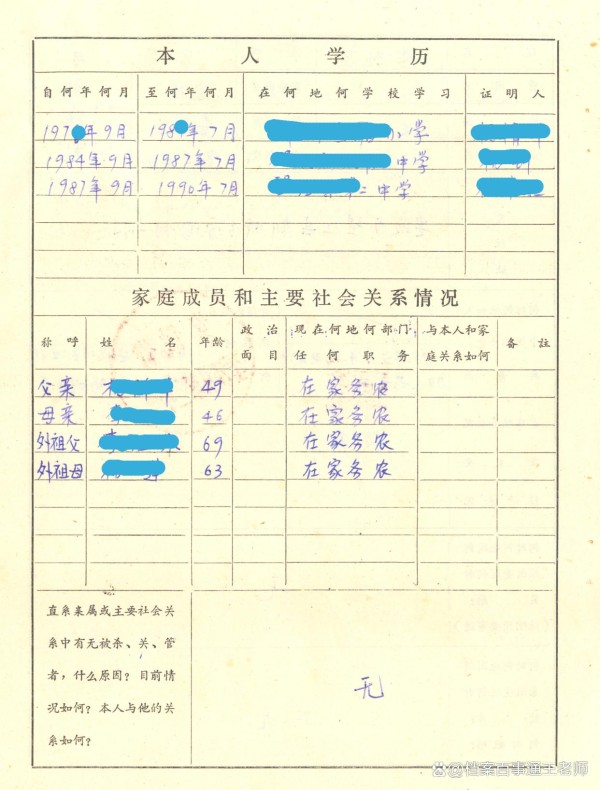 本人学历
自何年何月 至何年何月 在何地何学校学习 证明人
197 年9月 198 年7月 小学
1984年9月 1987年7月 中学
1987年9月 1990年7月 二中学
家庭成员和主要社会关系情况
称呼 姓名 年龄 政治面目 现在何地何部门任何职务 与本人和家庭关系如何 备註
父亲 49 在家务农
母亲 46 在家务农
外祖父 69 在家务农
外祖母 63 在家务农
直系亲属或主要社会关
系中有无被杀、关、管
者，什么原因？目前情
况如何？本人与他的关
系如何？
无
档案百事通王老师